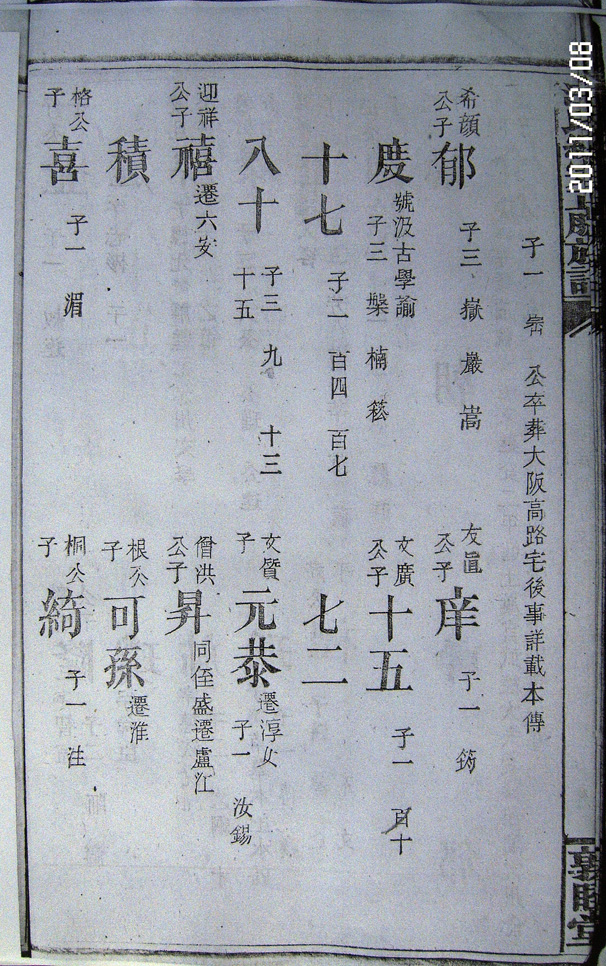 子一 公卒葬大阪高路宅後事詳載本傳
希顔公子 郁 子三 嶽 巖 嵩
友眞公子 庠 子一 筠
慶 號汲古學諭 子三 槃 楠 菘
文廣公子 十五 子一 百十
十七 子二 百四 百七
七二
八十 子三 九 十三 十五
文質子 元恭 遷淳安 子一 汝錫
迎祥公子 禧 遷六安
僧洪公子 昇 同侄盛遷盧江
積
根公子 可孫 遷淮
格公子 喜 子一 湄
桐公子 綺 子一 注
敦睦堂
2011/03/08